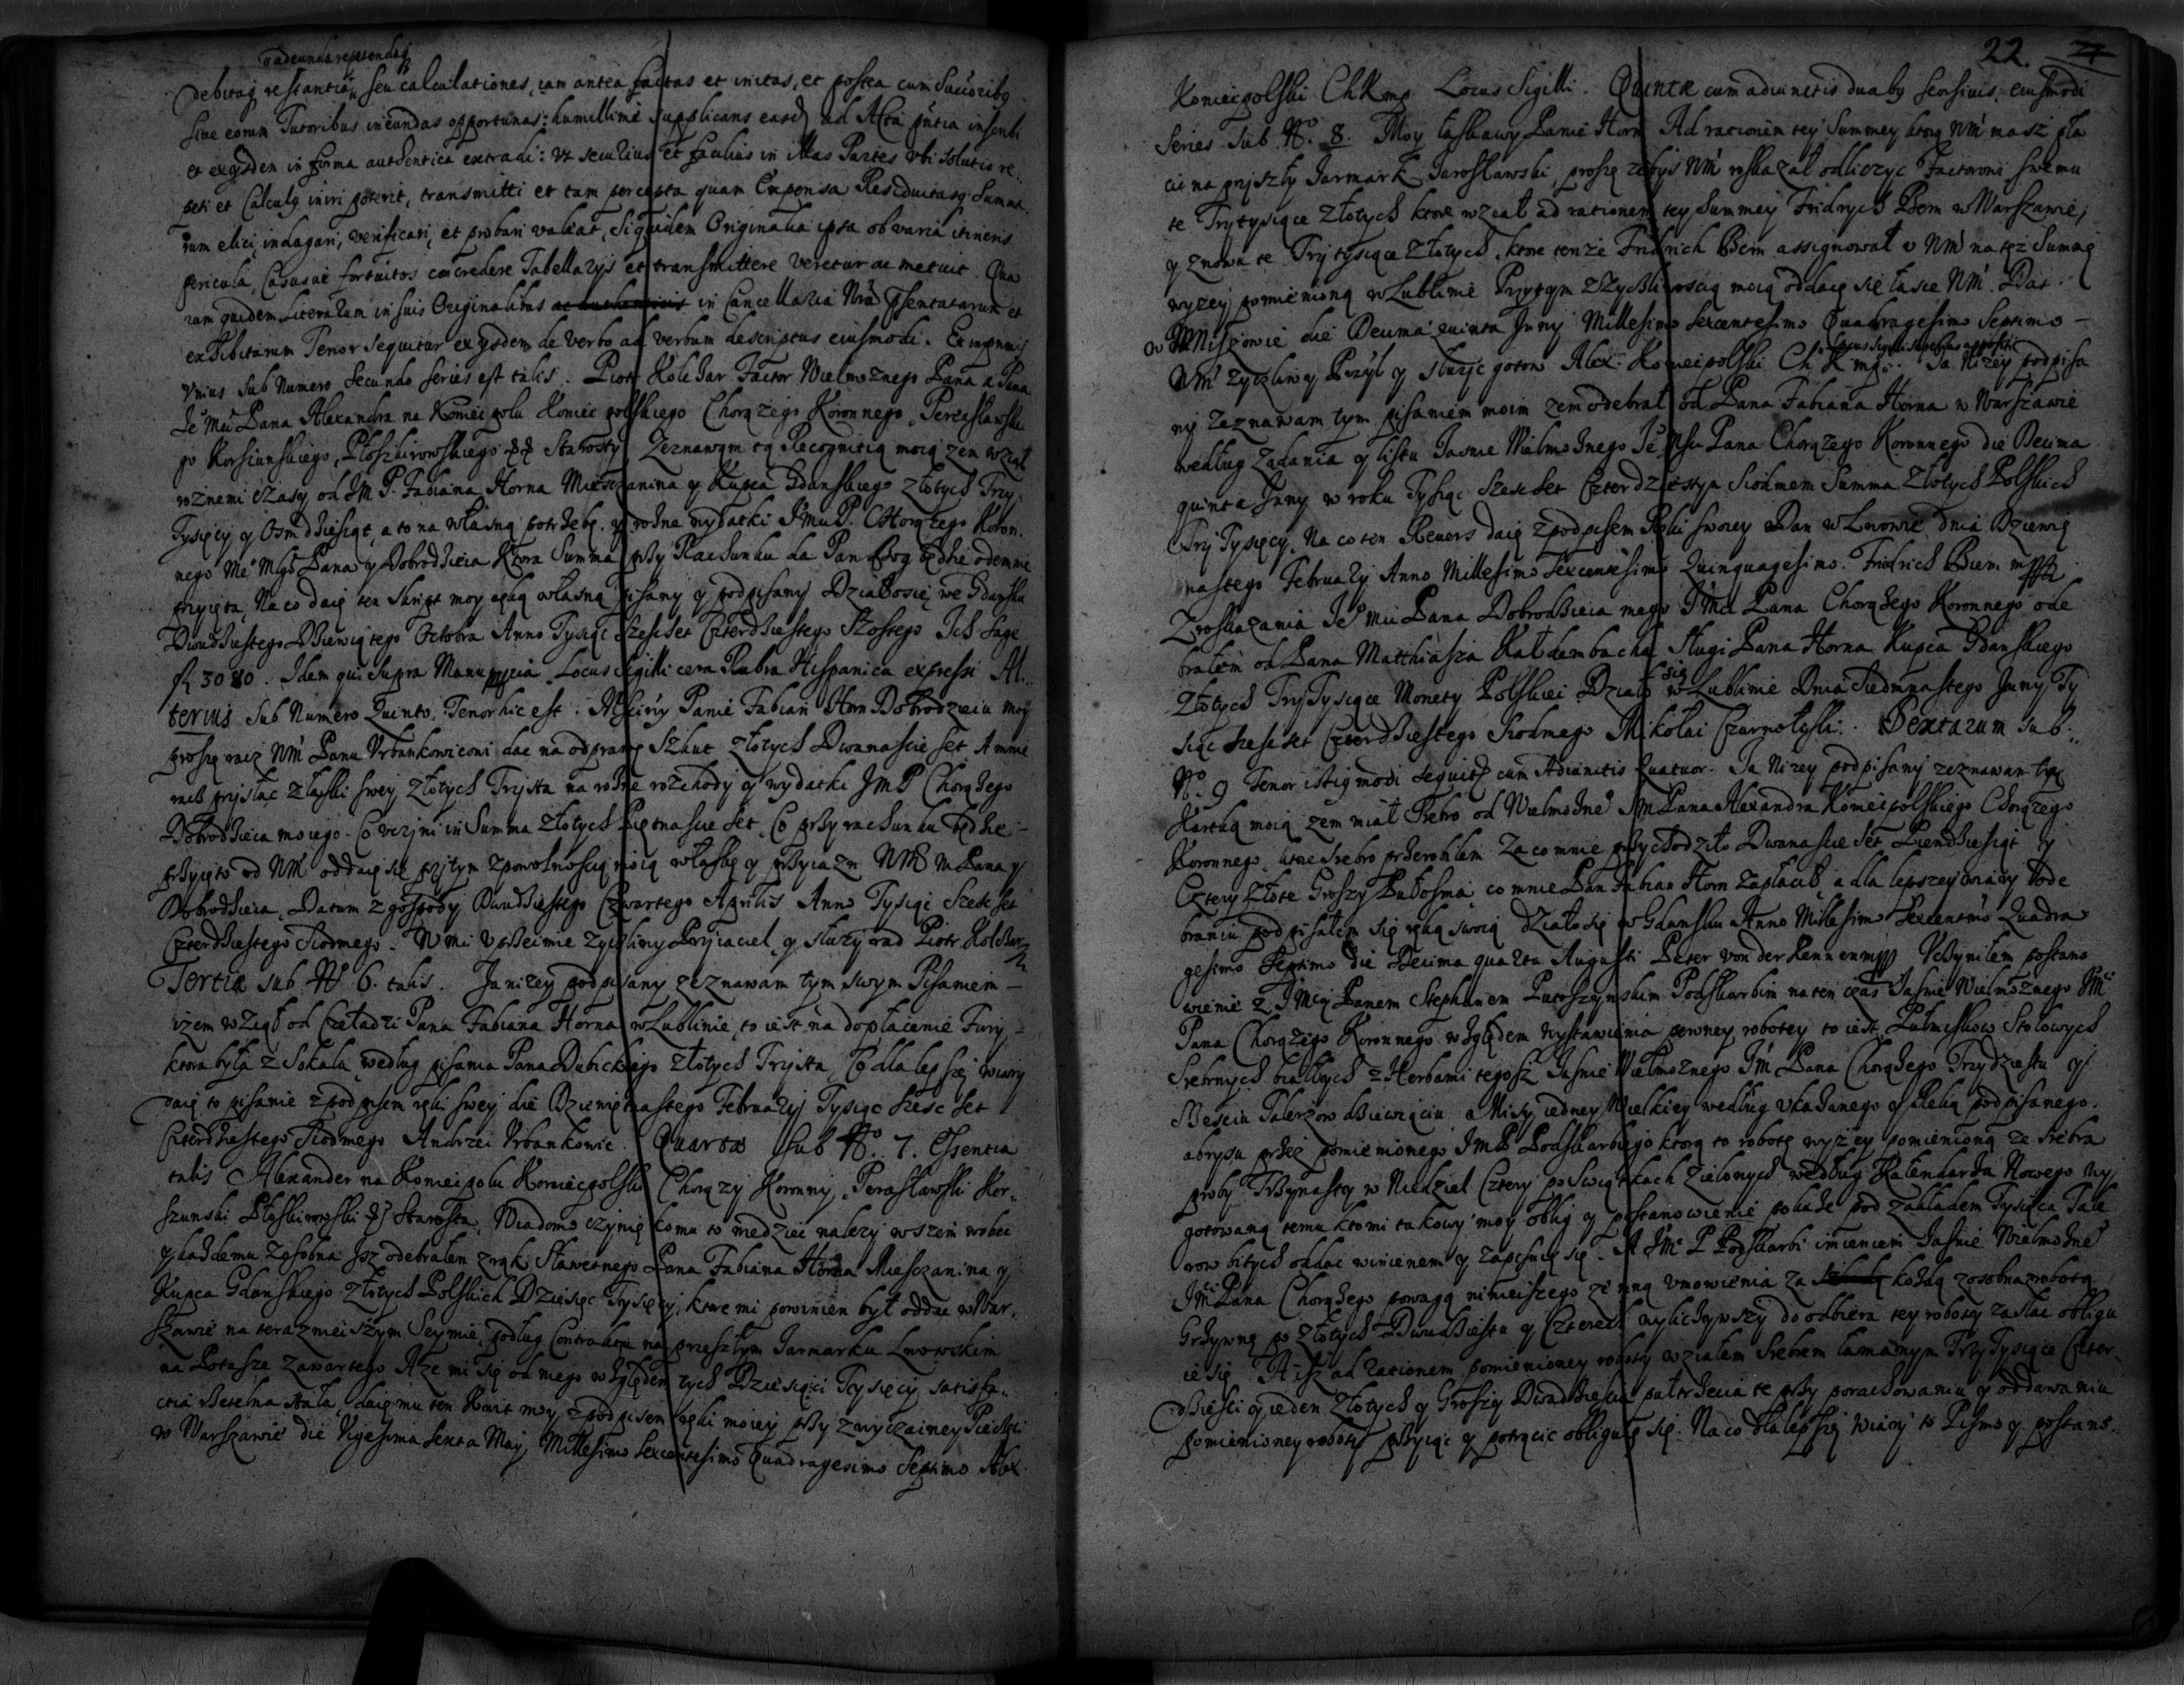 adeunda repetendaq
debitaq restantia seu calculationes, iam antea factas et initas, et postea cum Succorib9
sive eorum Tutoribus ineundas opportunas: humillime supplicans easd ad Acta pntia inscribi
et exysdem in forma authentica extradi: Vt securius et facilius in illas Partes vbi solutio re
peti et Calculq iniri poterit, transmitti et tam percepta quam Expensa Residuitasq Summa
rum elici, indagari, verificari, et probari valeat, Siquidem Originalia ipsa ob varia itineris
pericula, Casusue fortuitos concredere Tabellarys et transmittere veretur ac metuit. Qua
rum quidem Literarum in suis Originalibus in Cancellaria Nra psentatarum et
exhibitarum Tenor sequitur ex ysdem de verbo ad verbum descriptus eiusmodi. Et inprimis
Vnius sub Numero secundo series est talis. Piotr Kolchar Factor Wielmoznego Pana a Pana
Je Mci Pana Alexandra na Koniecpolu Koniecpolskiego Chorązego Koronnego, Pereasławskie
go Korsunskiego, Płoskirowskiego Starosty Zeznawam tą Recognitią moią zem wziął
roznemi czasy od JM P. Fabiana Horna Miesczanina y Kupca Gdanskiego złotych Trzy
Tysięcy y Osmdziesiąt, a to na własną potrzebę, y rozne wydatki JMci P. Chorązego Koron
nego Me Mlgo Pana y Dobrodzieia Ktora Summa przy Rachunku da Pan Bog będzie odemnie
przyięta, Na co daię ten skript moy ręką własną pisany y podpisany Działosię we Gdansku
Dwudziestego Dziewiątego Octobra Anno Tysiąc Szescset Czterdziestego Szostego Ich sage
fl 3080. Idem qui supra Manu ppria. Locus sigilli cera Rubra Hispanica expressi Al
terius sub Numero Quinto, Tenor hic est. Mosciwy Panie Fabian Horn Dobrodzieiu moy
proszę racz NM Panu Vrbankowiconi dac na odprawę szkut złotych Dwanascie set A mnie
racz przysłac z łaski swey złotych Trzysta na rozne rozchody y wydatki JMP Chorązego
Dobrodzieia moiego. Co vczyni in Summa złotych Piętnascie set, Co przy rachunku będzie
przyięto od NM oddaię się przytym z powolnoscią moią w łaskę y przyiazn NMo m Pana y
Dobrodzieia, Datum z gospody Dwudziestego Czwartego Aprilis Anno Tysiąc Szesc set
Czterdziestego Siodmego. W mi Vprzeimie zyczliwy Przyiaciel, y słuzyc rad Piotr Kolchar
Tertia sub No 6. talis. Ja nizey podpisany zeznawam tym swym Pisaniem
izem wziął od Czeladzi Pana Fabiana Horna w Lublinie, to iest na dopłacenie Fury
ktora była z Sokala, według pisania Pana Dubickiego złotych Trzysta, Co dla lepszej wiary
daię to pisanie z podpisem ręki swey die Dziewiętnastego February Tysiąc szesc set
Czterdziestego Siodmego Andrzei Vrbankowic. Quarta sub No. 7. Essentia
talis Alexander na Koniecpolu Koniecpolski Chorązy Koronny, Perasławski Kor
szunski Płoskirowski Starosta. Wiadomo czynię komu to wiedziec nalezy wszem wobec
y kazdemu zosobna Isz odebrałem z rąk Sławetnego Pana Fabiana Horna Miesczanina y
Kupca Gdanskiego złotych Polskich Dziesięc Tysięcy, ktore mi powinien był oddac w War
szawie na terazmieiszym Seymie, podług Contraktu na przeszłym Jarmarku Lwowskim
na Potasze zawartego A ze mi się od niego względem tych Dziesiąci Tysięcy satisfa
ctia zupełna stała, daię mu ten Kwit moy z podpisem ręki moiey przy zwyczainey Pieczęci
w Warszawie die Vigesima sexta May Millesimo sexcentesimo Quadragesimo Septimo Alex
22.
Koniecpolski Ch K mp. Locus Sigilli. Quinta cum adiunctis duab9 seorsiuis, eiusmodi
Series. Sub No. 8. Moy łaskawy Panie Horn Ad rationem tey Summey ktorą NM masz pła
cic na przyszły Jarmark Jarosławski, proszę zebys NM roskazał odliczyc Factorowi swemu
te Trzy tysiące złotych ktore wziął ad rationem tey Summey Fridrych Bem w Warszawie,
y znowu te Trzy tysiące złotych, ktore tenże Fridrich Bem assignował v NM na też Summę
wyzey pomienioną w Lublinie Przytym z zyczliwoscią moią oddaię się łasce NM. Dat.
w Mniszowie die Decima quinta Juny Millesimo sexcentesimo Quadragesimo Septimo
NM zyczliwy Przyl y słuzyc gotow Alex. Koniecpolski Ch K mp. Locus sigilli superius appositi Ja Nizey podpisa
ny zeznawam tym pisaniem moim zem odebrał od Pana Fabiana Horna w Warszawie
według ządania y listu Jasnie Wielmoznego Je Msci Pana Chorązego Koronnego die Decima
quinta Juny w roku Tysiąc szesc set Czterdziestym Siodmem Summa złotych Polskich
Trzy Tysięcy. Na co ten Revers daię z podpisem Ręki swoiey Dan w Lwowie dnia Dziewię
nastego February Anno Millesimo Sexcentesimo Quinquagesimo. Fridrich Biem mpp
Z roskazania Je Mci Pana Dobrodzieia mego JMci Pana Chorązego Koronnego ode
brałem od Pana Matthiasza Kaldembacha sługi Pana Horna Kupca Gdanskiego
złotych Trzy Tysiące Monety Polskiei Działo się w Lublinie Dnia Siedmnastego Juny Ty
siąc szesc set Czterdziestego Siodmego Mikołai Czarnołyski. Sextarum sub
No. 9 Tenor istiq modi sequitr cum Adiunctis Quatuor. Ja Nizey podpisany zeznawam tą
Kartką moią zem miał Srebro od Wielmozne JM Pana Alexandra Koniecpolskiego Chorązego
Koronnego, ktore srebro przerobilem Za co mnie przychodziło Dwanascie set Piendziesiąt y
Cztery złote Groszy Pułosma, co mnie Pan Fabian Horn zapłacił, a dla lepszey wiary Ode
brania podpisałem się ręką swoią działo się w Gdansku Anno Millesimo Sexcentmo Quadra
gesimo Septimo die Decima quarta Augusti Peter von der Rennen mpp Vczyniłem postano
wienie z JMcią Panem Stephanem Putoszynskim Podskarbim na ten czas Jasnie Wielmoznego JMci
Pana Chorązego Koronnego względem wystawienia pewney roboty, to iest Pułmiskow Stołowych
Srebrnych białych z Herbami tegosz Jasnie Wielmoznego JM Pana Chorązego Trzydziestu y
Szesciu Talerzow dziewięciu, a Misy iedney Wielkiey według vkazanego y Ręką podpisanego
abrysu przez pomienionego JMP Podskarbiego ktorą to robotę wyżey pomienioną ze srebra
proby Trzynastey w Niedziel Cztery po Swiątkach Zielonych według Kalendarza Nowego wy
gotowaną temu kto mi takowy moy oblig y postanowienie pokaże pod zakładem Tysiąca Tale
row bitych oddac winienem y zapisuię się. A JMc P Podskarbi imieniem Jasnie Wielmozne
JMci Pana Chorązego powagą ninieiszego ze mną vmowienia za kożdą zosobna robotą
Grzywnę po złotych Dwudziestu y Czterech wyliczywszy do odbiera tey roboty zasłac obligu
ie się A isz ad rationem pomienioney roboty wziałem Srebrem łamanym Trzy Tysiące Czter
dziesci y ieden złotych y Groszy Dwadziescia pułtrzecia te przy porachowaniu y oddawaniu
pomienioney roboty przyiąc y potrącic obliguię się. Na co dla lepszey Wiary to Pismo y postano